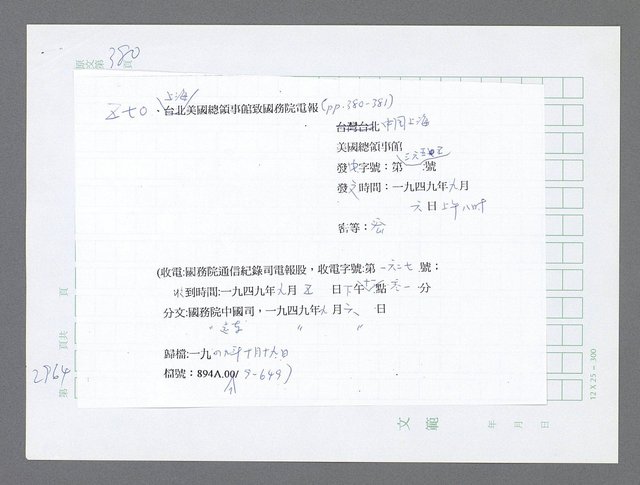 原文第380頁
上海
五七〇、台北美國總領事館致國務院電報(pp.380-381)
台灣台北中国上海
美國總領事館
發電字號：第三六五五號
發文時間：一九四九年九月
六日上午八時
密等：密
(收電:國務院通信紀錄司電報股，收電字號:第一六二七號：
收到時間:一九四九年九月五日下午 點 分
分文:國務院中國司，一九四九年九月六日
" " "
歸檔:一九四九年十月十九日
檔號：894A.00/9-649)
第 頁共 頁
2964
文範
年 月 日
12 X 25 = 300